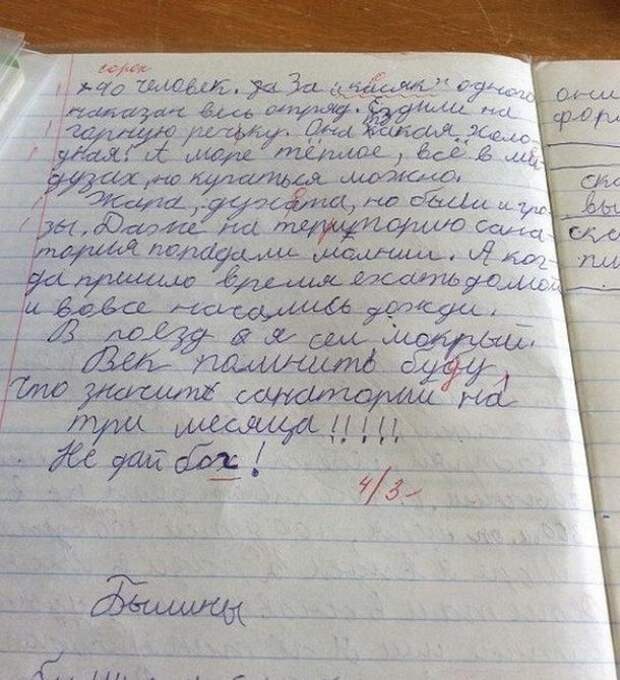 сорок
40 человек. За „касяк" одного
наказан весь отряд. Ездили на
горную речьку. Она такая холо-
дная! А море тёплое, всё в ме-
дузах, но купаться можно.
Жара, духота, но были и гро-
зы. Даже на територию сана-
тория попадали молнии. А ког-
да пришло время ехать домой
и вовсе начались дожди.
В поезд я сел мокрый.
Век помнить буду,
что значит санаторий на
три месяца!!!!!
Не дай бох!
4/3-
Былины
они
фор
ска
вы
ска